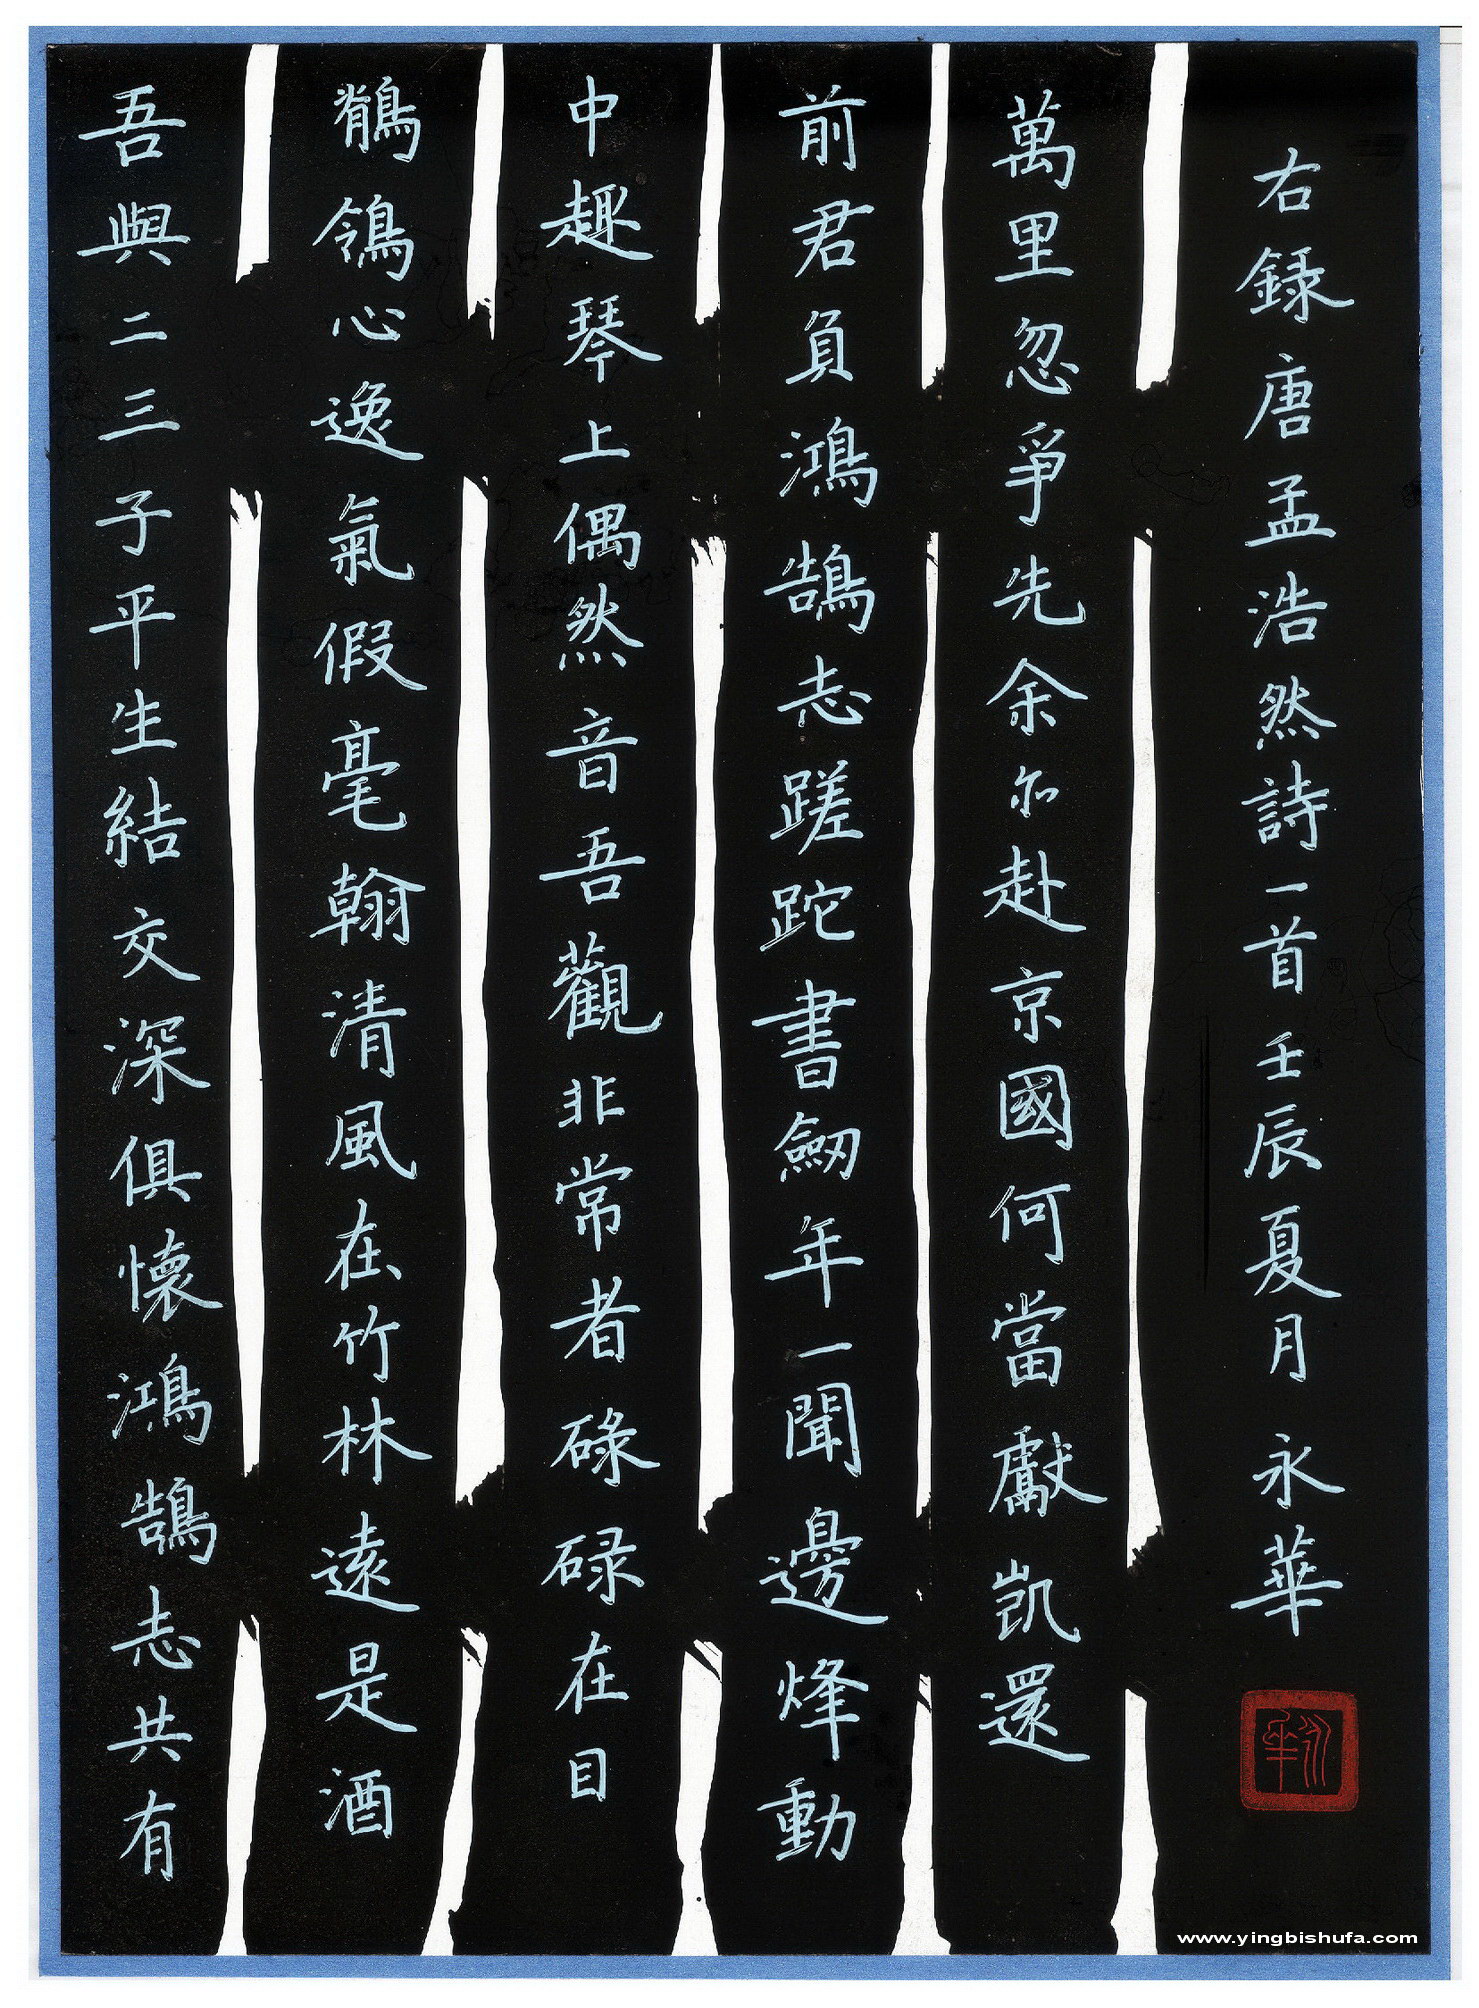 吾與二三子平生結交深俱懷鴻鵠志共有
鶺鴒心逸氣假毫翰清風在竹林遠是酒
中趣琴上偶然音吾觀非常者碌碌在目
前君負鴻鵠志蹉跎書劒年一聞邊烽動
萬里忽爭先余尔赴京國何當獻凱還
右録唐孟浩然詩一首壬辰夏月永華
永華
www.yingbishufa.com